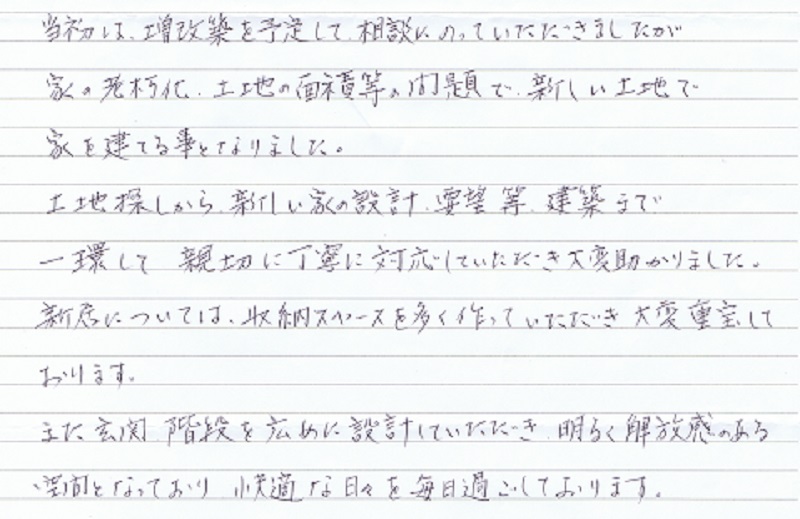 当初は、増改築を予定して相談にのっていただきましたが
家の老朽化、土地の面積等の問題で、新しい土地で
家を建てる事となりました。
土地探しから、新しい家の設計、要望等、建築まで
一環して 親切に丁寧に対応していただき大変助かりました。
新居については、収納スペースを多く作っていただき 大変重宝して
おります。
また玄関、階段を広めに設計していただき、明るく解放感のある
空間となっており 快適な日々を毎日過ごしております。